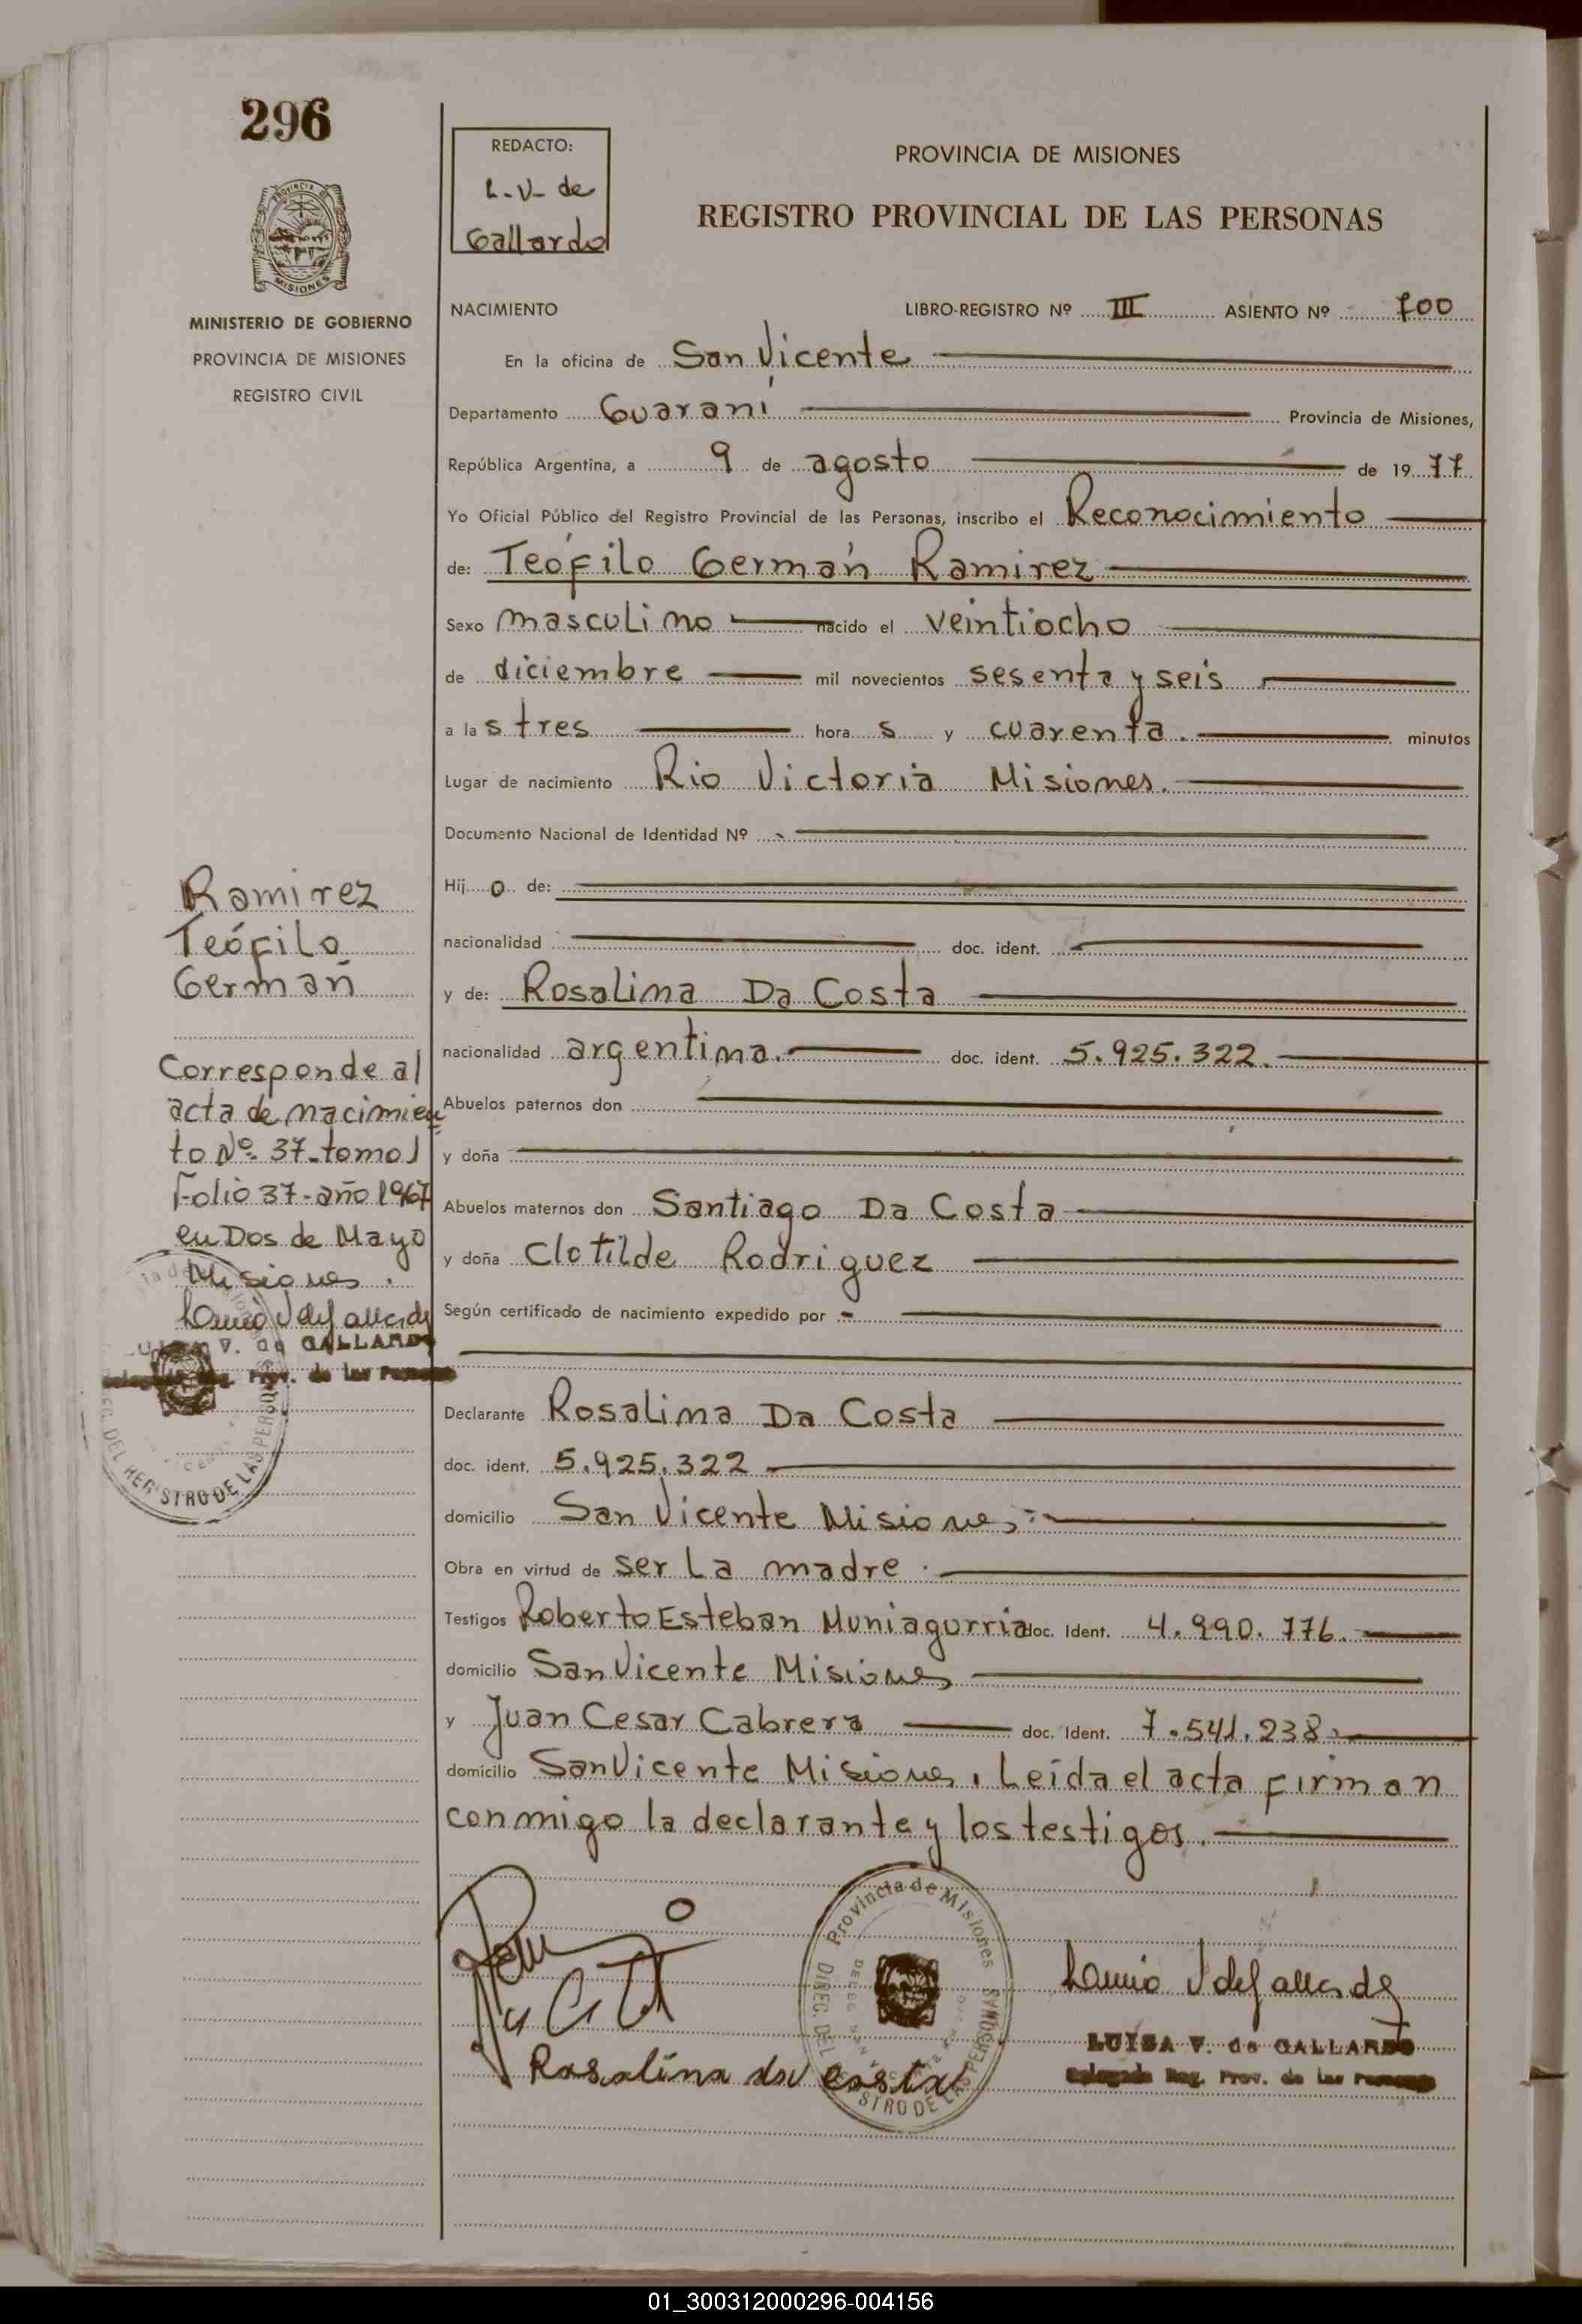 296
PROVINCIA DE
MISIONES
MINISTERIO DE GOBIERNO
PROVINCIA DE MISIONES
REGISTRO CIVIL
REDACTO:
L-V- de
Gallardo
PROVINCIA DE MISIONES
REGISTRO PROVINCIAL DE LAS PERSONAS
NACIMIENTO LIBRO-REGISTRO Nº III ASIENTO Nº 700
En la oficina de San Vicente
Departamento Guaraní Provincia de Misiones,
República Argentina, a 9 de agosto de 1977
Yo Oficial Público del Registro Provincial de las Personas, inscribo el Reconocimiento
de: Teófilo Germán Ramirez
Sexo masculino nacido el veintiocho
de diciembre mil novecientos sesenta y seis
a las tres horas y cuarenta. minutos
Lugar de nacimiento Rio Victoria Misiones.
Documento Nacional de Identidad Nº
Hijo de:
nacionalidad doc. ident.
y de: Rosalina Da Costa
nacionalidad argentina. doc. ident. 5.925.322.
Abuelos paternos don
y doña
Abuelos maternos don Santiago Da Costa
y doña Clotilde Rodriguez
Según certificado de nacimiento expedido por -
Declarante Rosalina Da Costa
doc. ident. 5.925.322
domicilio San Vicente Misiones
Obra en virtud de ser la madre.
Testigos Roberto Esteban Muniagurria doc. Ident. 4.990.776.
domicilio San Vicente Misiones
y Juan Cesar Cabrera doc. Ident. 7.541.238
domicilio San Vicente Misiones, Leída el acta firman
conmigo la declarante y los testigos.
Ramirez
Teófilo
Germán
Corresponde al
acta de nacimien
to Nº 37-tomo I
Folio 37-año 1967
en Dos de Mayo
Misiones.
V. de GALLARDO
Reg. Prov. de las Personas
DEL REGISTRO DE LAS PERSONAS
Rosalina da costa
Provincia de Misiones
DIREC. DEL REGISTRO DE LAS PERSONAS
LUISA V. de GALLARDO
Delegada Reg. Prov. de las Personas
01_300312000296-004156